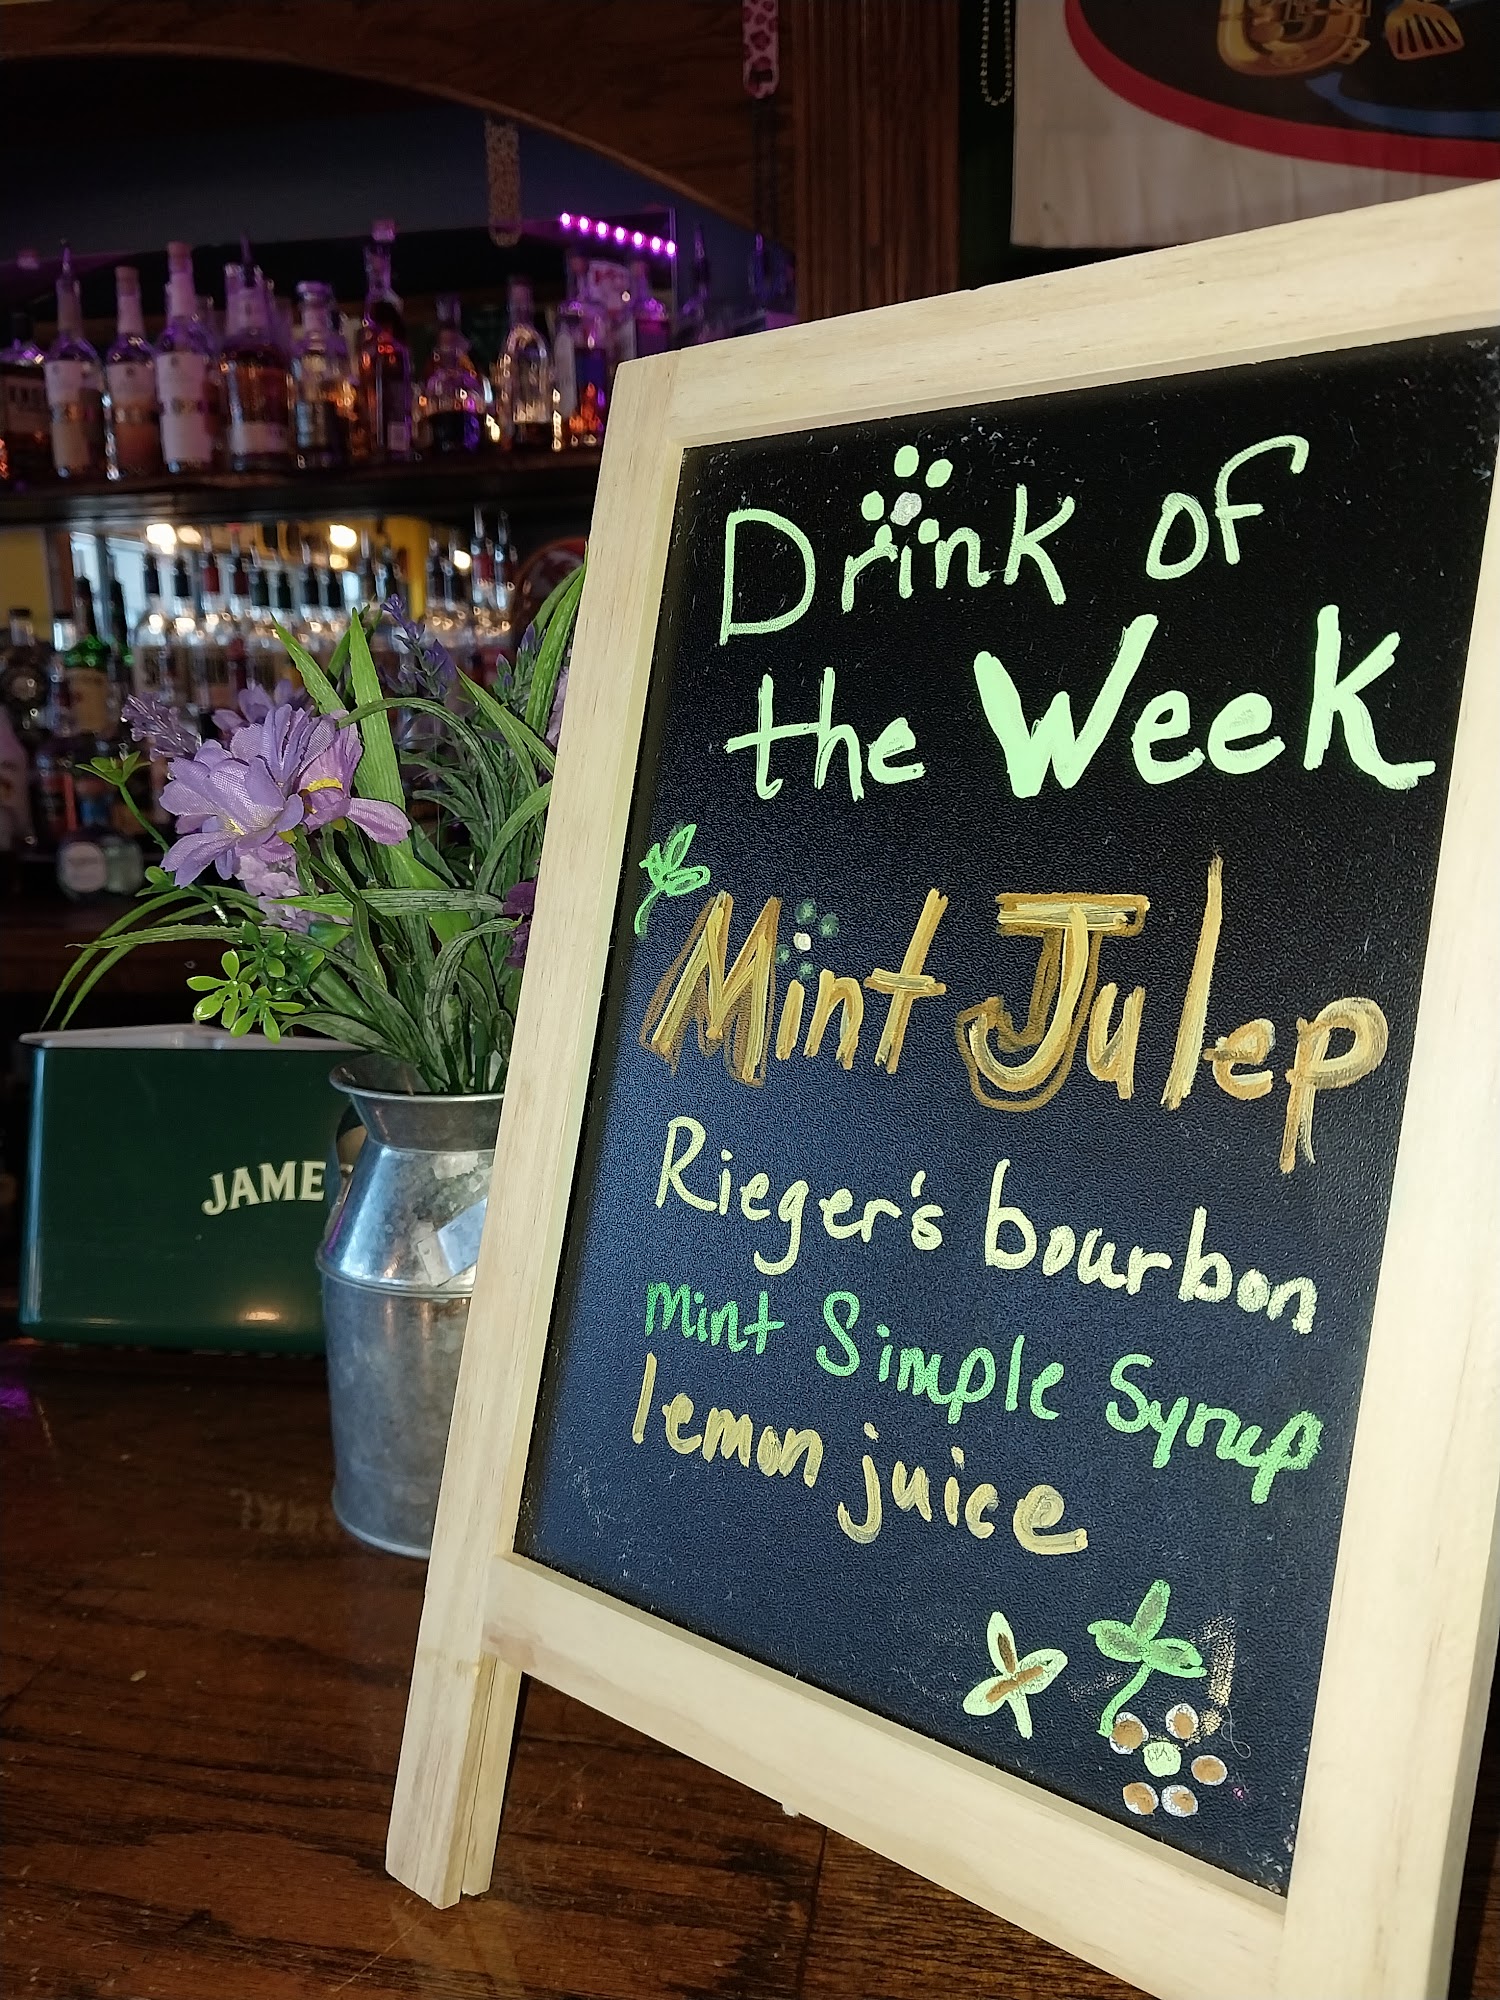 Drink of
the Week
Mint Julep
Rieger's bourbon
mint Simple Syrup
lemon juice
JAME